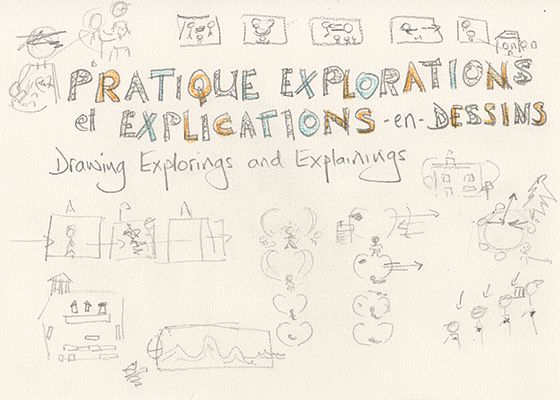 PRATIQUE EXPLORATIONS
et EXPLICATIONS -en- DESSINS
Drawing Explorings and Explainings
A P A